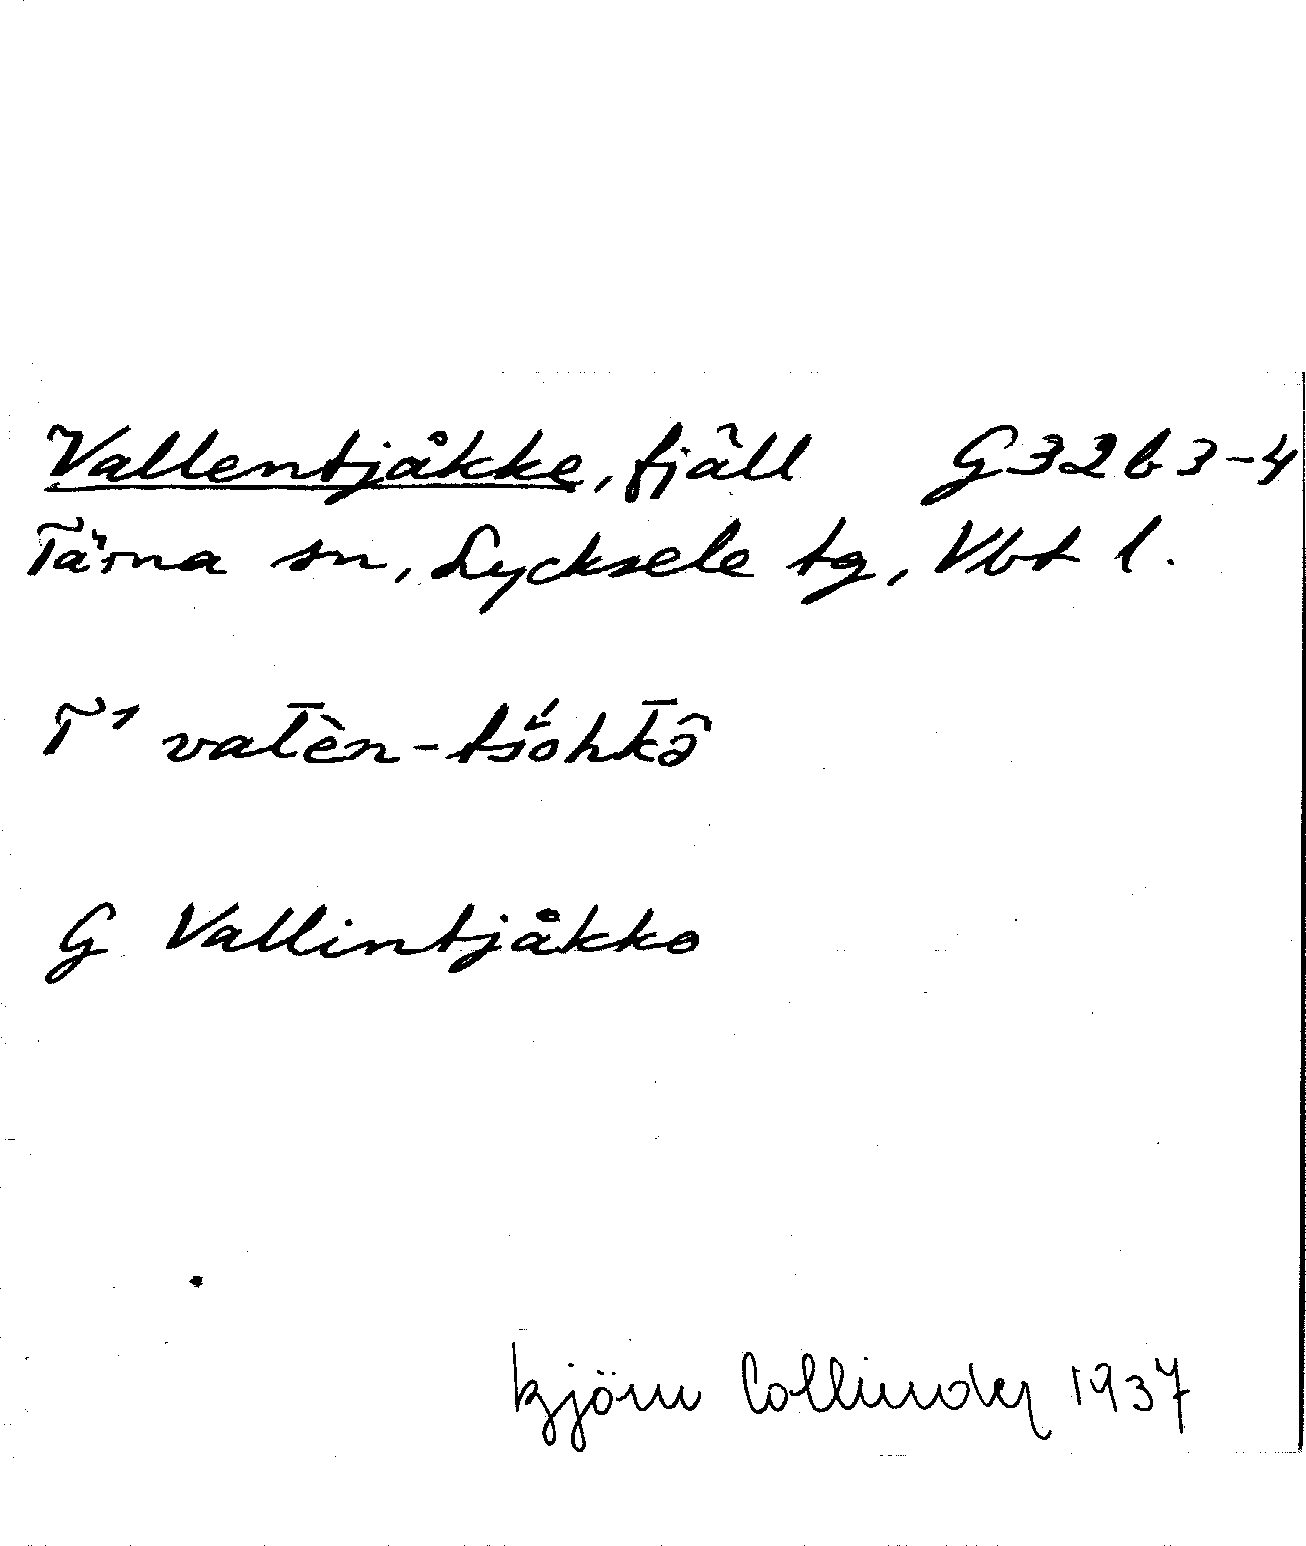 Vallentjåkke, fjäll G32b3-4
Tärna sn, Lycksele tg, Vbt l.
T¹ val̄èn-tšóhk̄ə̂
G Vallintjåkko
Björn Collinder 1937